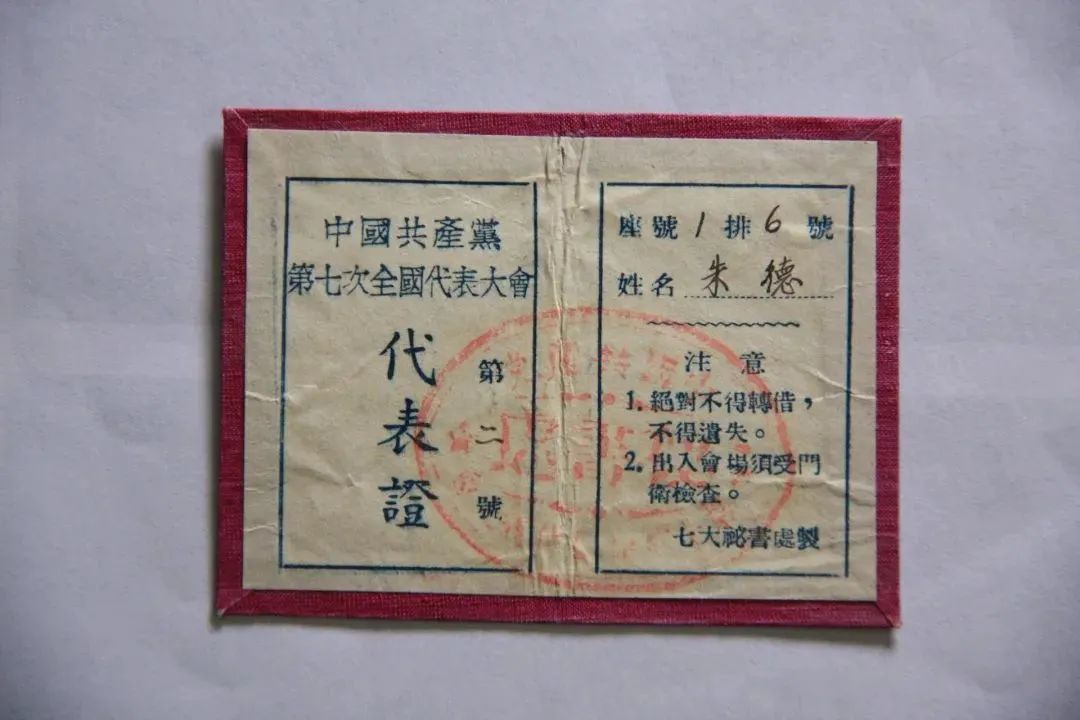 中國共產黨
第七次全國代表大會
代表證
第二號
座號1排6號
姓名 朱德
注意
1. 絕對不得轉借，
不得遺失。
2. 出入會場須受門
衛檢查。
七大祕書處製